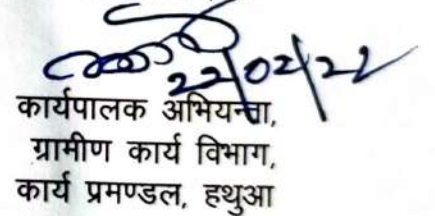 22/02/22
कार्यपालक अभियन्ता,
ग्रामीण कार्य विभाग,
कार्य प्रमण्डल, हथुआ